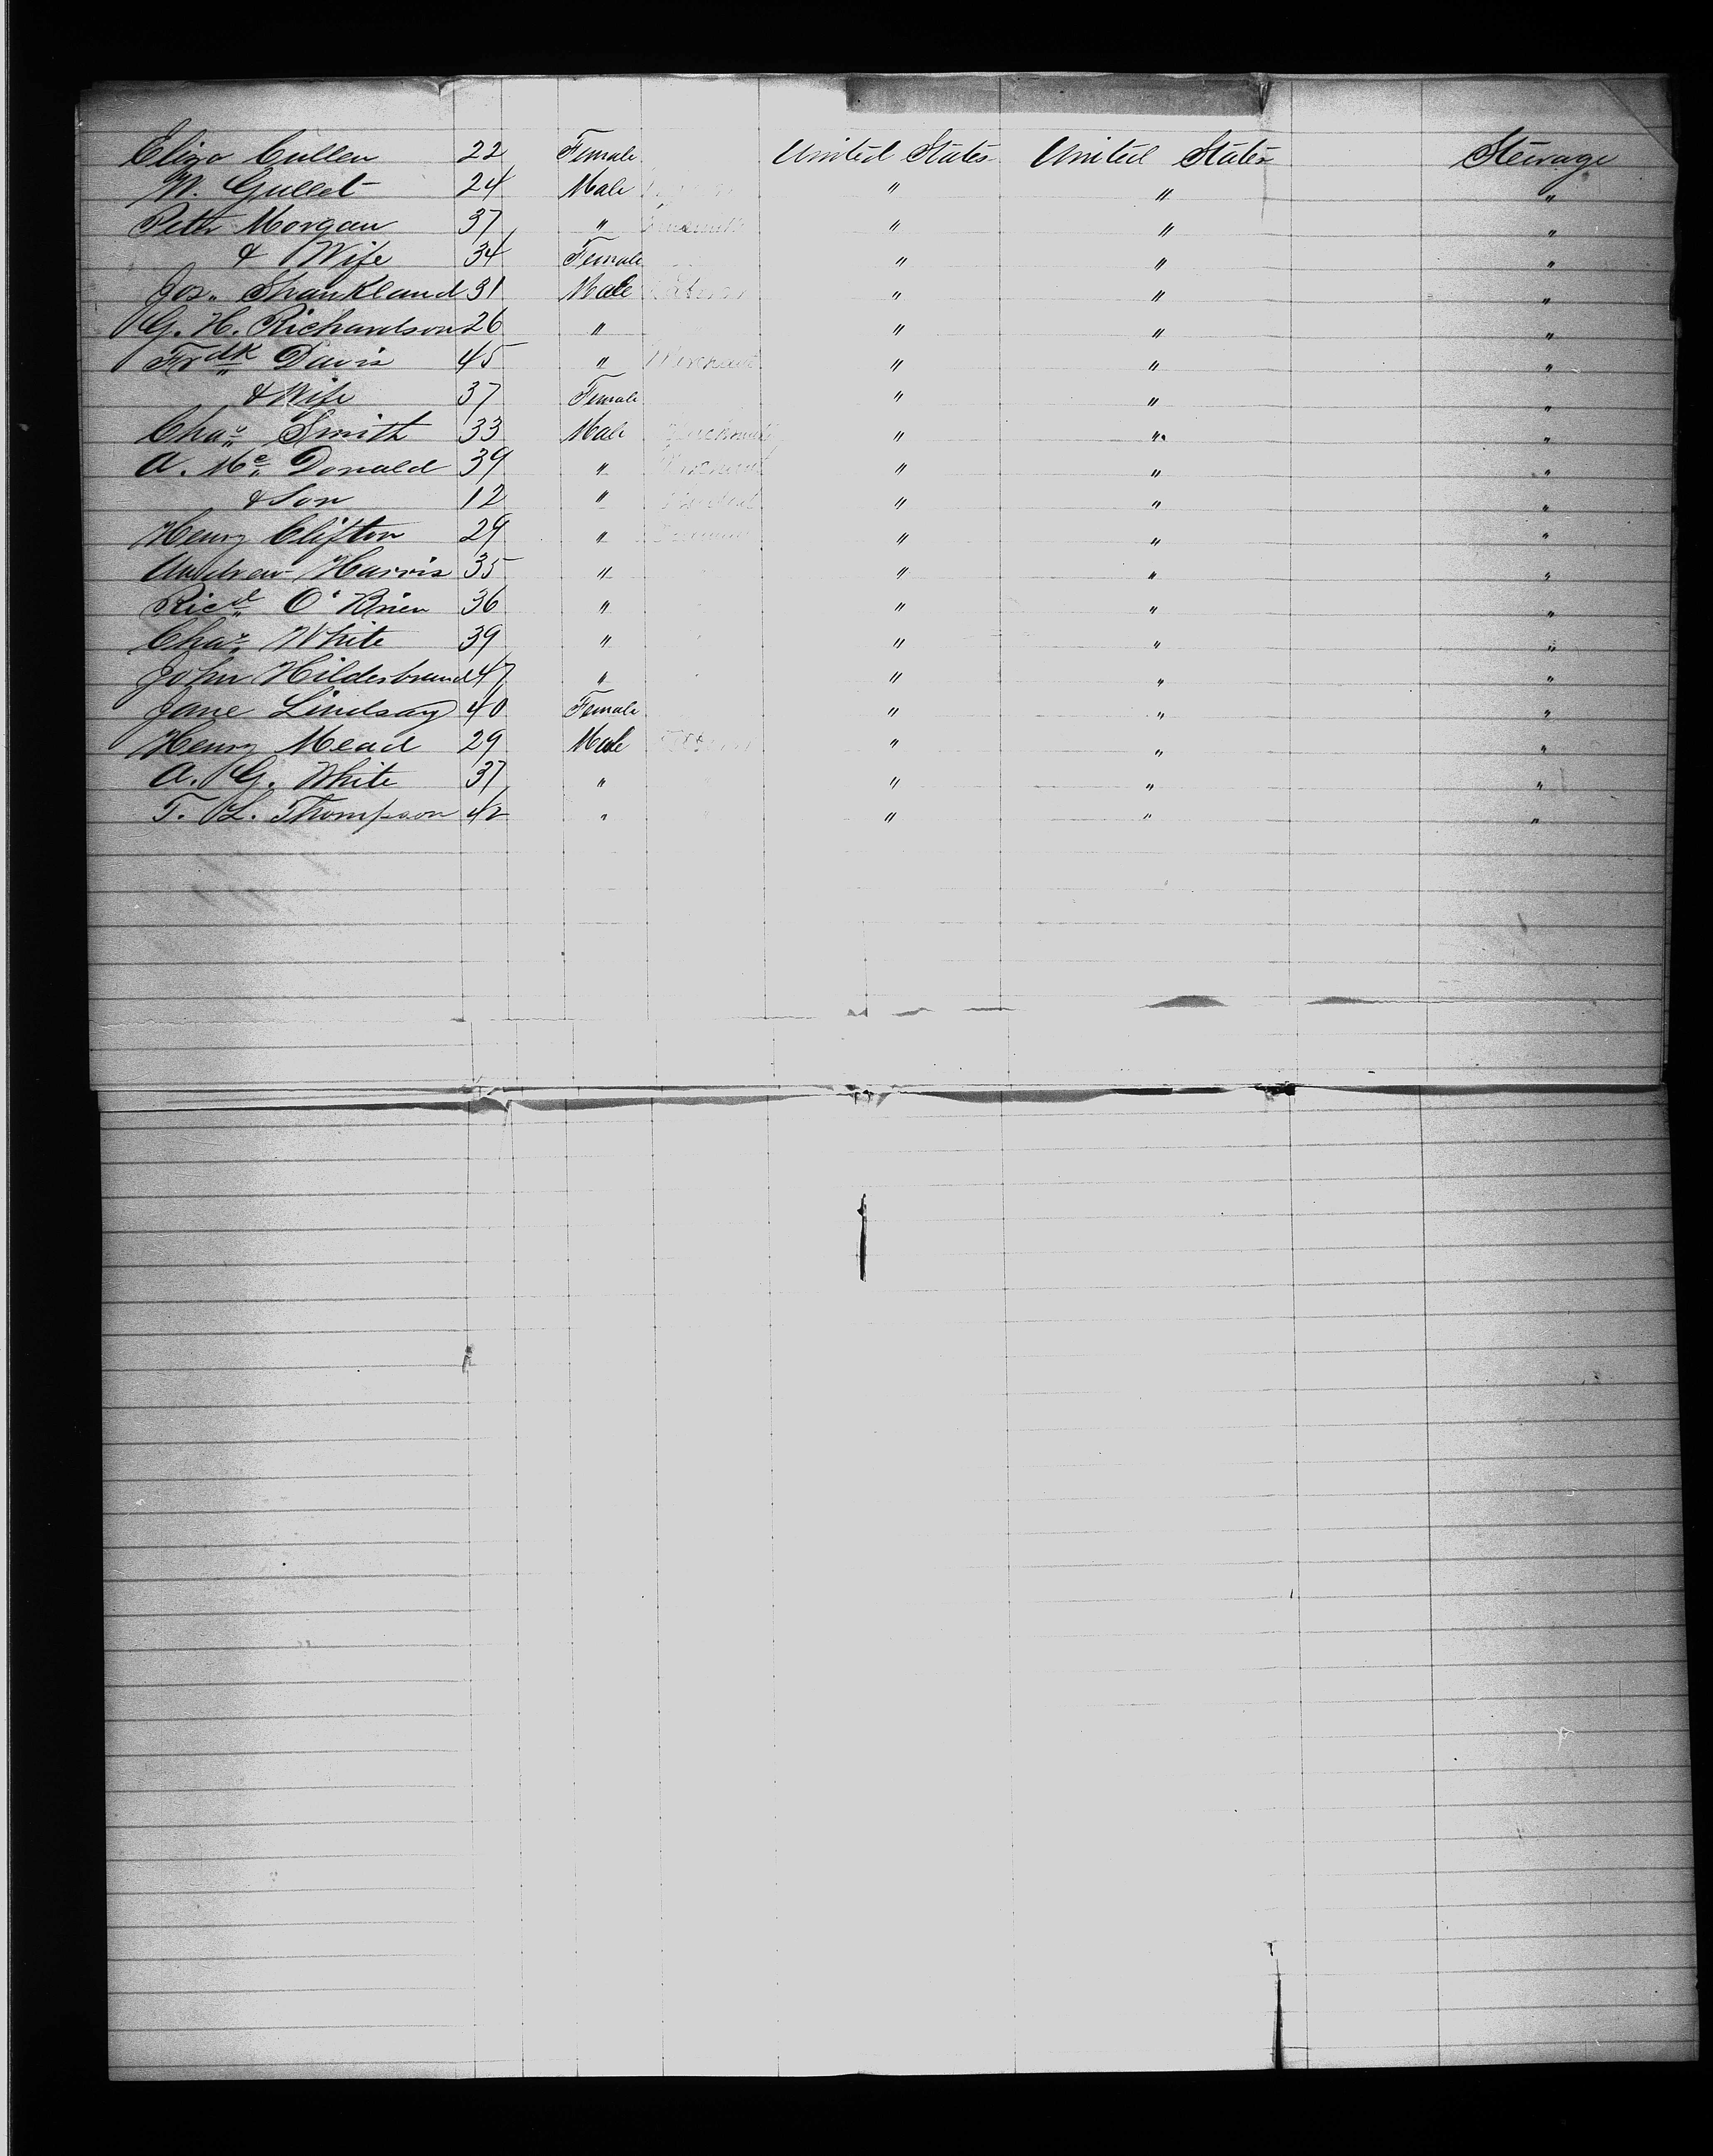 Eliza Cullen 22 Female United States United States Steerage
W. Gullet 24 Male " " "
Peter Morgan 37 " " " "
& Wife 34 Female " " "
Jos. Shankland 31 Male Laborer " " "
G. H. Richardson 26 " " " "
Fr dk Davis 45 " Merchant " " "
& Wife 37 Female " " "
Chas Smith 33 Male " " "
A. Mc Donald 39 " " " "
& Son 12 " " " "
Henry Clifton 29 " " " "
Andrew Harris 35 " " " "
Ricd O'Brien 36 " " " "
Chas White 39 " " " "
John Hilderbrand 47 " " " "
Jane Lindsay 40 Female " " "
Henry Mead 29 Male " " "
A. G. White 37 " " " " "
T. L. Thompson 42 " " " " "